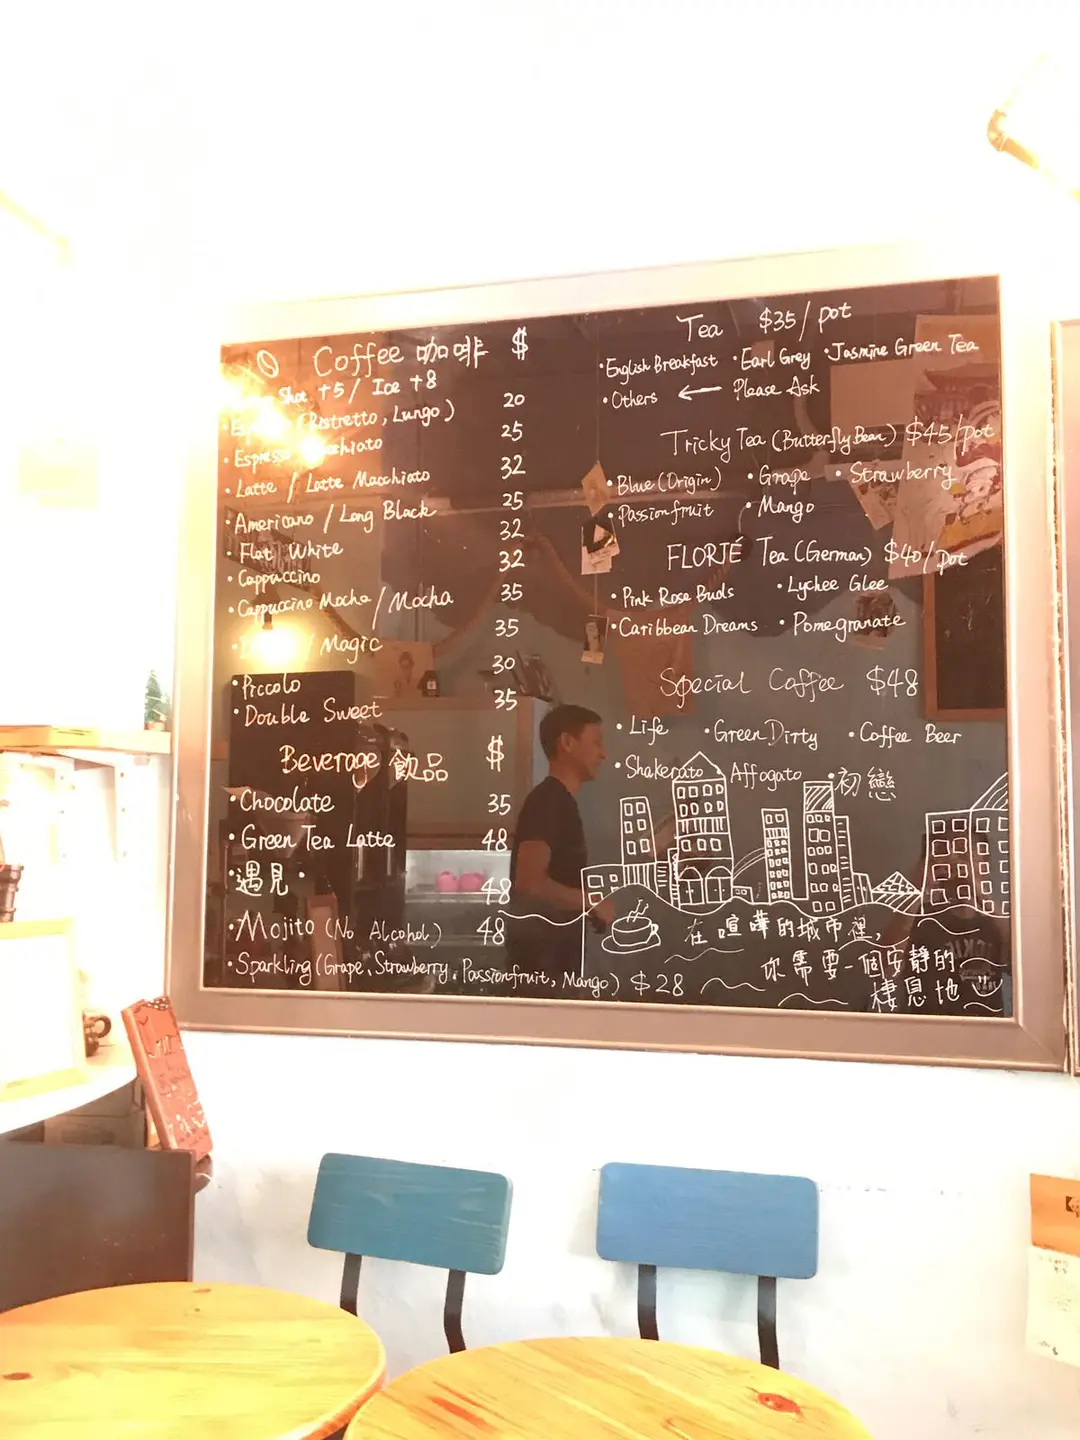 Coffee 咖啡 $
Shot +5 / Ice +8
(Ristretto, Lungo) 20
· Espresso Macchiato 25
· Latte / Latte Macchiato 32
· Americano / Long Black 25
· Flat White 32
· Cappuccino 32
· Cappuccino Mocha / Mocha 35
/ Magic 35
· Piccolo 30
· Double Sweet 35
Beverage 飲品 $
· Chocolate 35
· Green Tea Latte 48
· 遇見 · 48
· Mojito (No Alcohol) 48
· Sparkling (Grape, Strawberry, Passionfruit, Mango) $28
Tea $35/pot
· English Breakfast · Earl Grey · Jasmine Green Tea
· Others ← Please Ask
Tricky Tea (Butterfly Bean) $45/pot
· Blue (Origin) · Grape · Strawberry
· Passionfruit · Mango
FLORTÉ Tea (German) $40/pot
· Pink Rose Buds · Lychee Glee
· Caribbean Dreams · Pomegranate
Special Coffee $48
· Life · Green Dirty · Coffee Beer
· Shakerato · Affogato · 初戀
在喧嘩的城市裡,
你需要一個安靜的
棲息地